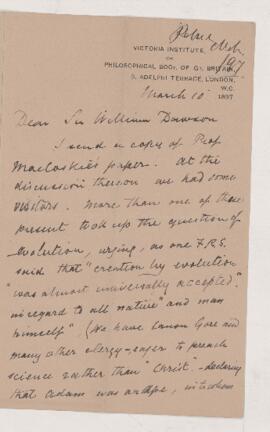 VICTORIA INSTITUTE,
OR
PHILOSOPHICAL SOCY. OF GT. BRITAIN,
ADELPHI TERRACE, LONDON,
W.C.
March 10 1897
Dear Sir William Dawson
I send a copy of Prof
Macloskie's paper. At the
discussion thereon we had some
visitors. More than one of those
present took up the question of
evolution, urging, as one F.R.S.
said that "creation by evolution
"was almost universally accepted"
"in regard to all nature" and man
himself". (We have Canon Gore and
many other clergy - eager to preach
science rather than "Christ" - declaring
that Adam was an Ape, into whom